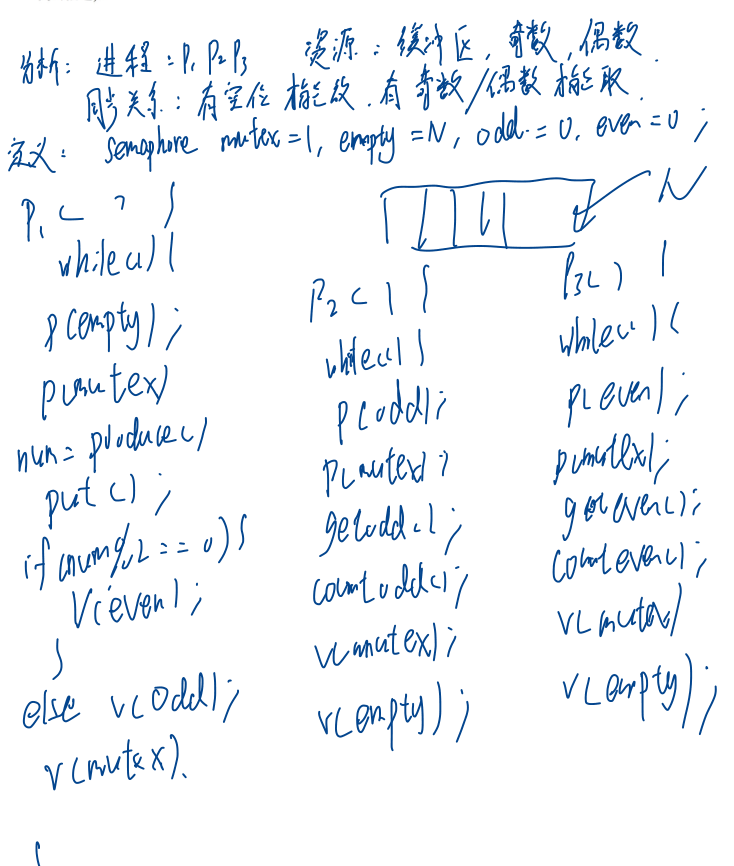 分析: 进程: P1 P2 P3 资源: 缓冲区, 奇数, 偶数
同步关系: 有空位才能放. 有奇数/偶数才能取
定义: semaphore mutex=1, empty=N, odd=0, even=0;
P1( ) {
while(1){
P(empty);
P(mutex)
num=produce()
put();
if(num%2==0){
V(even);
}
else V(odd);
V(mutex).
N
P2( ) {
while(1){
P(odd);
P(mutex);
getodd();
countodd();
V(mutex);
V(empty);
P3( ) {
while(1){
P(even);
P(mutex);
geteven();
counteven();
V(mutex)
V(empty);